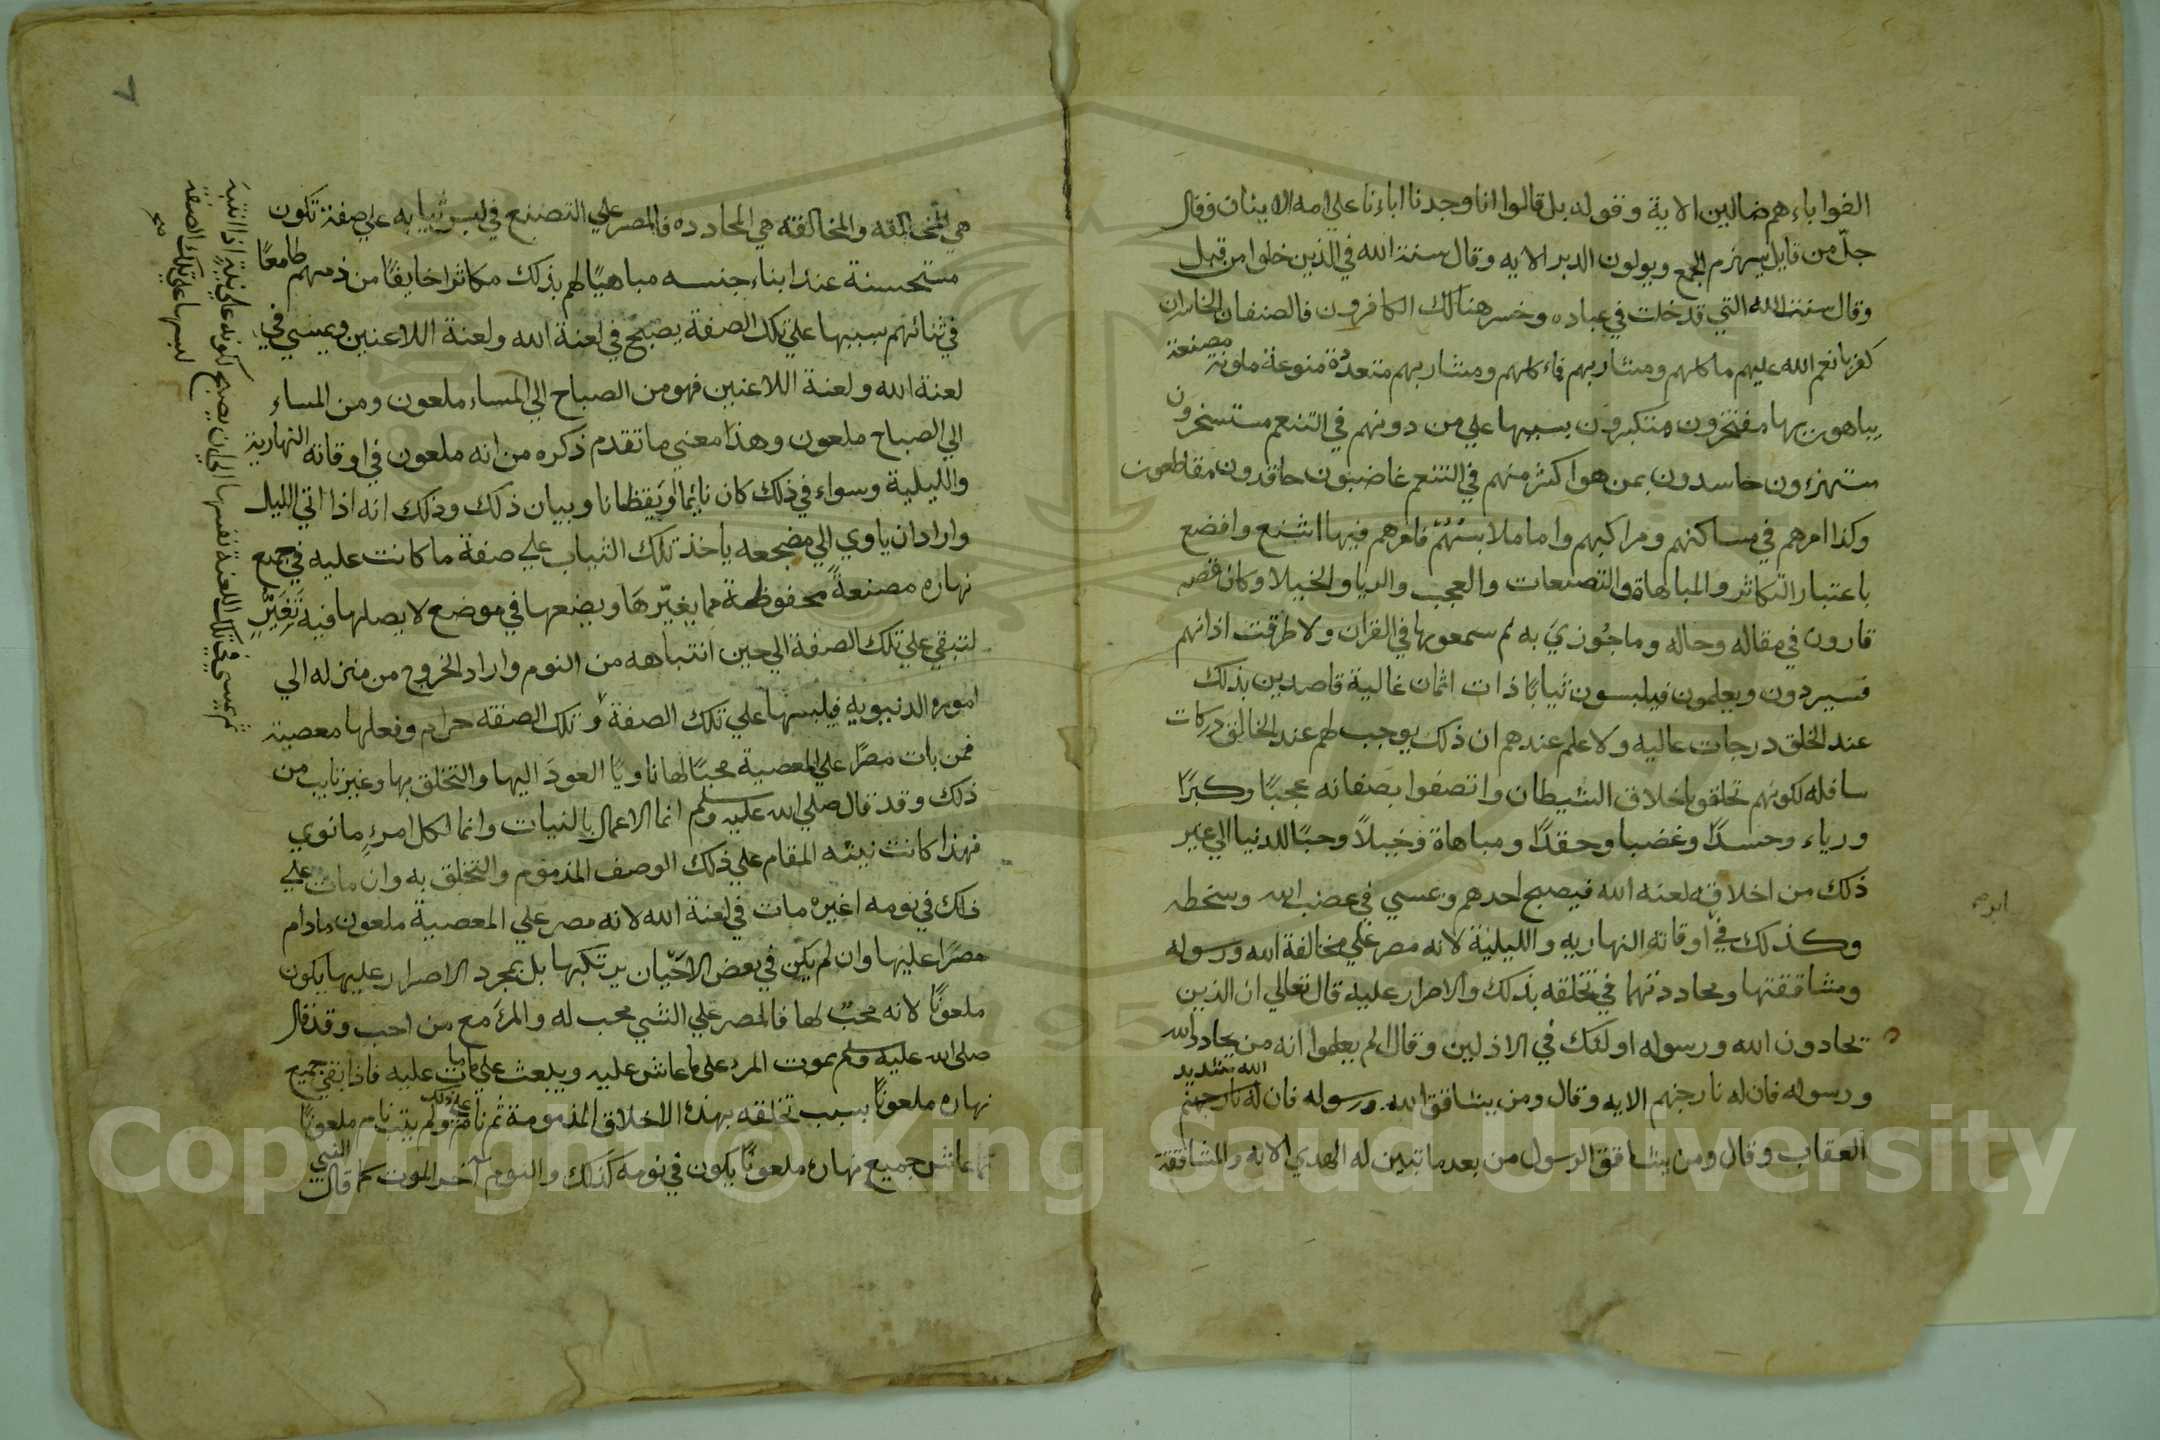 الفوا اباءهم ضالين الاية وقوله بل قالوا انا وجدنا اباءنا علي امه الايتان وقال
جلّ من قايل سيهزم الجمع ويولون الدبر الايه وقال سنة الله في الذين خلوا من قبل
وقال سنت الله التي قد خلت في عباده وخسر هنالك الكافرون فالصنفان الخاسران
كفرا نعم الله عليهم ماكلهم ومشاربهم فماكلهم ومشاربهم متعددة منوعة ملونة مصنعة
يباهون بها مفتخرون متكبرون بسببها علي من دونهم في التنعم مستسخرون
مستهزءون حاسدون بمن هو اكثر منهم في التنعم غاضبون حاقدون مقاطعون
وكذا امرهم في مساكنهم ومراكبهم واما ملابسهم فامرهم فيها اشنع وافضع
باعتبار التكاثر والمباهاة والتصنعات والعجب والريا والخيلا وكان قصه
قارون في مقاله وحاله وما جوزي به لم سمعوها في القران ولا طرقت اذانهم
فسيردون ويعلمون فيلبسون ثيابًا ذات اثمان غالية قاصدين بذلك
عند الخلق درجات عاليه ولا علم عندهم ان ذلك يوجب لهم عند الخالق دركات
سافله لكونهم تخلقوا باخلاق الشيطان واتصفوا بصفاته عجبًا وكبرًا
ورياء وحسدًا وغضبا وحقدًا ومباهاة وخيلاً وحبًا للدنيا الي غير
ذلك من اخلاقه لعنه الله فيصبح احدهم ويمسي في غضب الله وسخطه
وكذلك في اوقاته النهاريه والليلية لانه مصر علي مخالفة الله ورسوله
ومشاققتها ومحاددتهما في تخلقه بذلك والاصرار عليه قال تعالي ان الذين
يحادون الله ورسوله اولئك في الاذلين وقال الم يعلموا انه من يحادد الله
ورسوله فان له نار جهنم الايه وقال ومن يشاقق الله ورسوله فان الله شديد
العقاب وقال ومن يشاقق الرسول من بعد ما تبين له الهدي الايه والمشاققة
٧
هي المخالفه والمخالفة هي المحادده فالمصر علي التصنع في لبس ثيابه علي صفة تكون
مستحسنة عند ابناء جنسه مباهيًا لهم بذلك مكاثرا خايفًا من ذمهم طامعًا
في ثنائهم سببها علي تلك الصفة يصبح في لعنة الله ولعنة اللاعنين ويمسي في
لعنة الله ولعنة اللاعنين فهو من الصباح الي المساء ملعون ومن المساء
الي الصباح ملعون وهذا معني ما تقدم ذكره من انه ملعون في اوقاته النهارية
والليلية وسواء في ذلك كان نايمًا او يقظانا وبيان ذلك وذلك انه اذا اتي الليل
واراد ان ياوي الي مضجعه ياخذ تلك الثياب علي صفة ما كانت عليه في جميع
نهاره مصنعةً محفوظة مما يغيّرها ويضعها في موضع لا يصلها فيه تغيير
لتبقي علي تلك الصفة الي حين انتباهه من النوم واراد الخروج من منزله الي
اموره الدنيويه فيلبسها علي تلك الصفة وتلك الصفه حرام وفعلها معصية
فمن بات مصرًا علي المعصية محبًا لها ناويًا العودَ اليها والتخلق بها وغير تايب من
ذلك وقد قال صلي الله عليه وسلم انما الاعمال بالنيات وانما لكل امرءٍ ما نوي
فهذا كانت نيته المقام علي ذلك الوصف المذموم والتخلق به وان مات علي
ذلك في نومه اغيره مات في لعنة الله لانه مصر علي المعصية ملعون مادام
مصرًا عليها وان لم يكن في بعض الاحيان يرتكبها بل بمجرد الاصرار عليها يكون
ملعونًا لانه محبّ لها فالمصر علي الشي محب له والمرء مع من احب وقد قال
صلي الله عليه وسلم يموت المرء علي ما عاش عليه ويبعث علي ما مات عليه فاذا بقي جميع
نهاره ملعونًا بسبب تخلقه بهذه الاخلاق المذمومة ثم نام علي ذلك ولم يتب نام ملعونًا
كما عاش جميع نهاره ملعونًا يكون في نومه كذلك والنوم اخو الموت كما قال النبي
ثم يمسي في تلك اللعنة نفسها الي ان يصبح لكونه علي نية اذا انتبه
لبسها علي تلك الصفة
صح